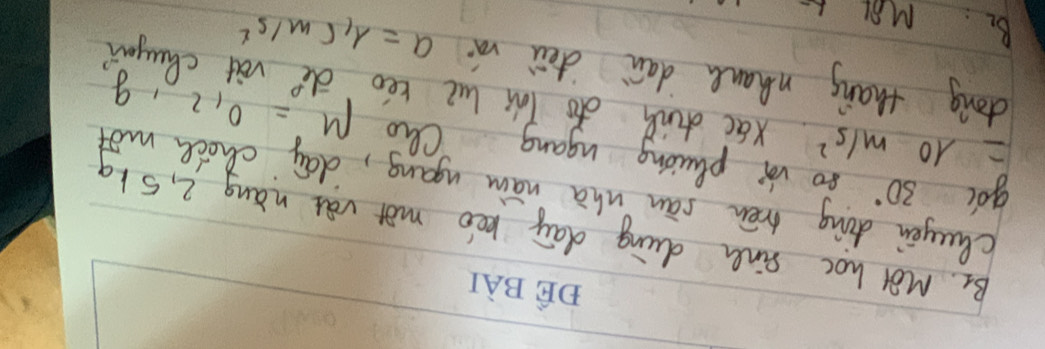 ĐỀ BÀI
B1. Một học sinh dùng dây kéo một vật nặng 2,5 kg
chuyển động trên sàn nhà nằm ngang, dây chếch một
góc 30° so với phương ngang. Cho μ = 0,2, g
= 10 m/s². Xác định độ lớn lực kéo để vật chuyển
động thẳng nhanh dần đều với a = 1,5 m/s²
B2: Một